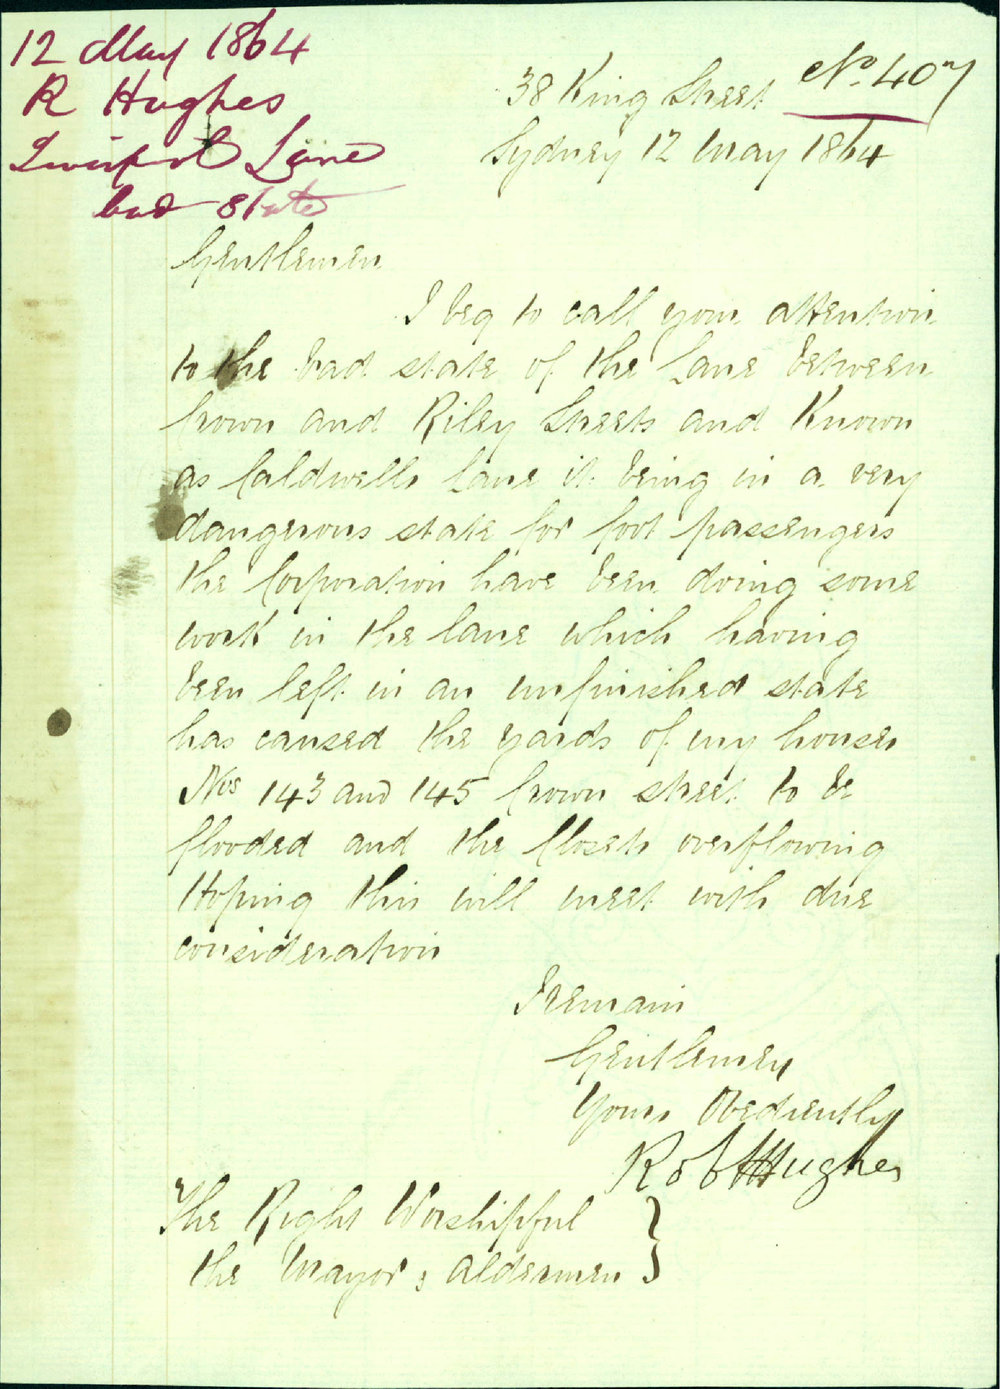 12 May 1864
R Hughes
Liverpool Lane
bad state
No. 407
38 King Street
Sydney 12 May 1864
Gentlemen
I beg to call your attention
to the bad state of the Lane between
Crown and Riley Streets and Known
as Caldwells Lane it being in a very
dangerous state for foot passengers
the Corporation have been doing some
work in the lane which having
been left in an unfinished state
has caused the yards of my houses
Nos 143 and 145 Crown street to be
flooded and the Closets overflowing
Hoping this will meet with due
consideration
I remain
Gentlemen
Yours Obediently
Robt Hughes
The Right Worshipful
the Mayor & Aldermen }